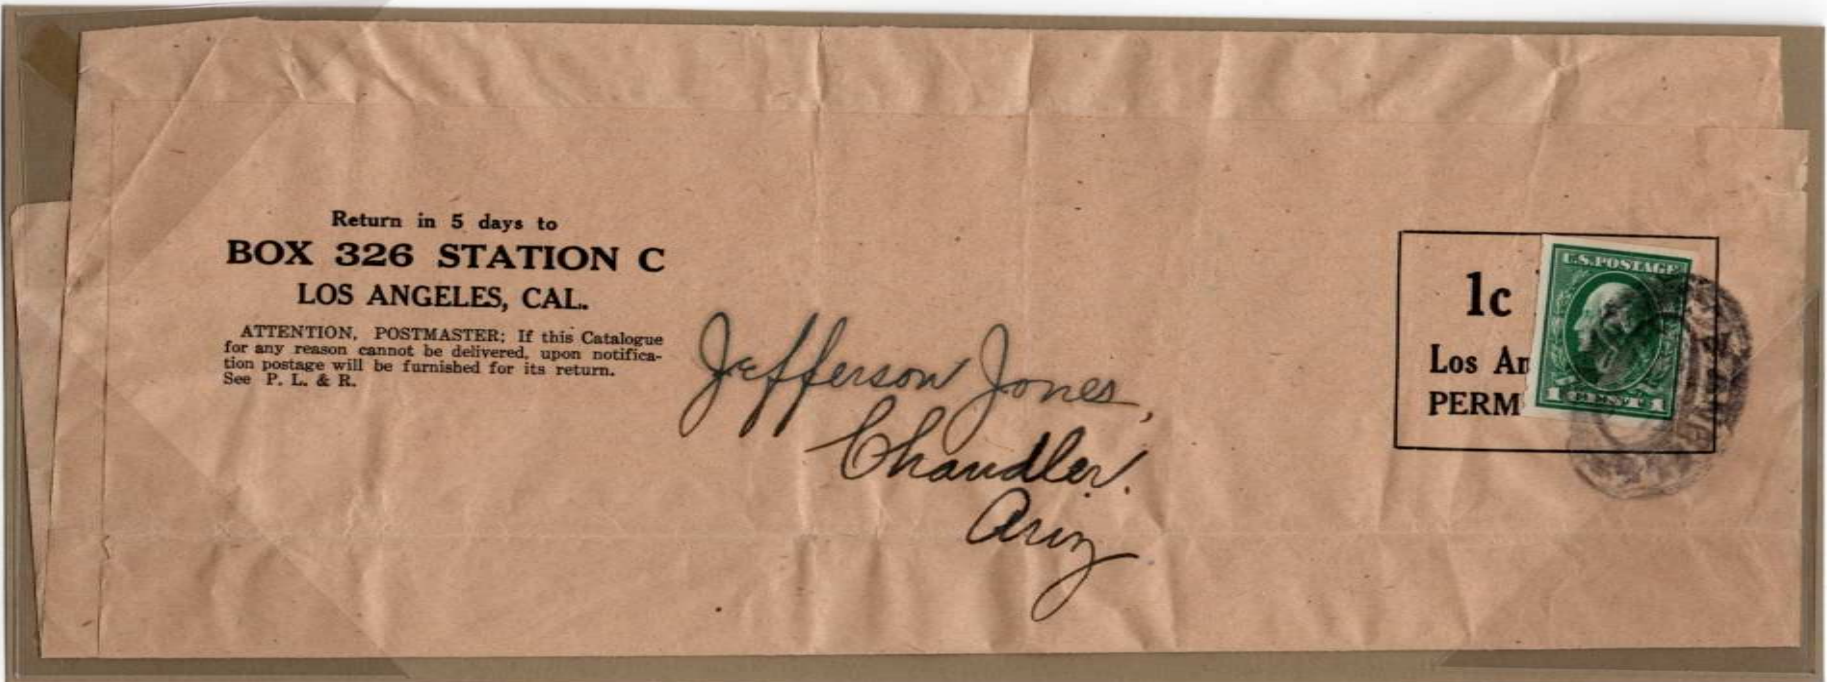 Return in 5 days to
BOX 326 STATION C
LOS ANGELES, CAL.
ATTENTION, POSTMASTER: If this Catalogue
for any reason cannot be delivered, upon notifica-
tion postage will be furnished for its return.
See P. L. & R.
Jefferson Jones,
Chandler.
Ariz
1c
Los An
PERM
U.S. POSTAGE
1 CENT 1